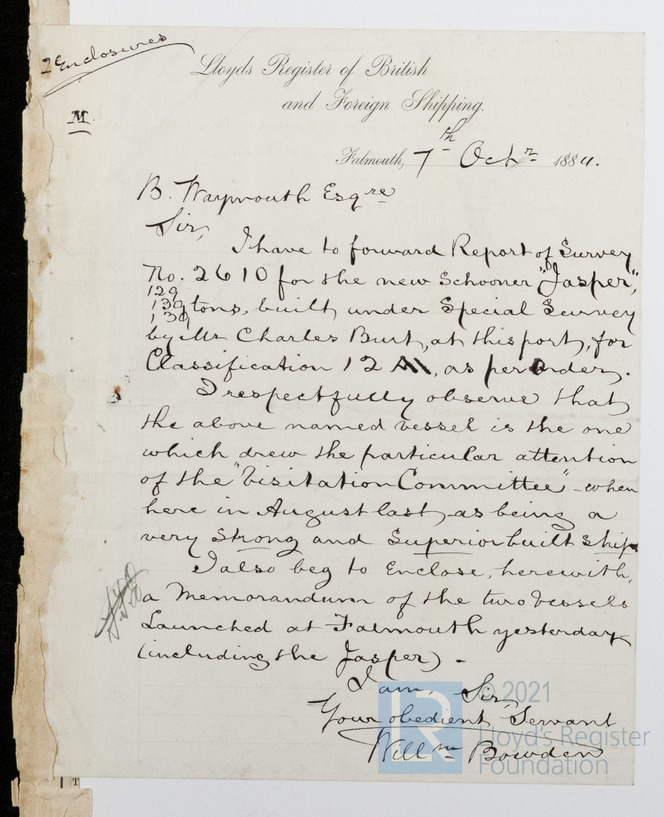 2 Enclosures
Lloyds Register of British
and Foreign Shipping.
M.
Falmouth, 7th Octr 1884.
B. Waymouth Esqre
Sir,
I have to forward Report of Survey
No. 2610 for the new Schooner "Jasper",
129
139 tons, built under Special Survey
139
by Mr Charles Burt, at this port, for
Classification 12 A1, as per order.
I respectfully observe that
the above named vessel is the one
which drew the particular attention
of the "Visitation Committee" when
here in August last, as being a
very Strong and Superior built Ship
I also beg to Enclose, herewith,
a Memorandum of the two Vessels
Launched at Falmouth yesterday
(including the Jasper) -
I am, Sir,
Your obedient Servant
Willm Bowden
LR
© 2021
Lloyd's Register
Foundation